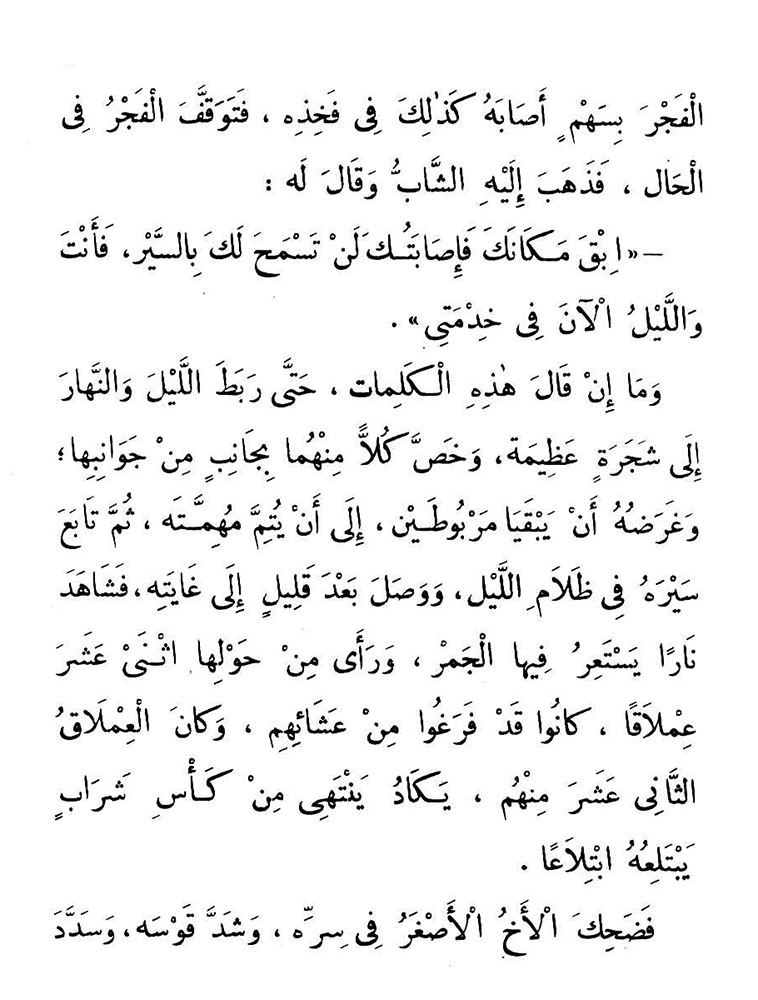 الْفَجْرَ بِسَهْمٍ أَصَابَهُ كَذٰلِكَ فِى فَخِذِه ، فَتَوَقَّفَ الْفَجْرُ فِى
الْحَال ، فَذَهَبَ إِلَيْهِ الشَّابُّ وَقَالَ لَه :
–«اِبْقَ مَكَانَكَ فَإِصَابَتُـكَ لَنْ تَسْمَحَ لَكَ بِالسَّيْر، فَأَنْتَ
وَاللَّيْلُ الْآنَ فِى خِدْمَتِى» .
وَمَا إِنْ قَالَ هٰذِهِ الْـكَلِمات ، حَتَّى رَبَطَ اللَّيْلَ وَالنَّهارَ
إِلَى شَجَرَةٍ عَظِيمَة، وَخَصَّ كُلاًّ مِنْهُما بِجَانِبٍ مِنْ جَوَانِبِها؛
وَغَرَضُهُ أَنْ يَبْقَيَا مَرْبُوطَـيْن ، إِلَى أَنْ يُتِمَّ مُهِمَّـتَه ، ثُمَّ تَابَعَ
سَيْرَهُ فِى ظَلَامِ اللَّيْل، وَوَصَلَ بَعْدَ قَلِيلٍ إِلَى غَايَتِه، فَشَاهَدَ
نَارًا يَسْتَعِرُ فِيها الْجَمْر ، وَرَأَى مِنْ حَوْلِها اثْـنَىْ عَشَرَ
عِمْلاَقًا ، كانُوا قَدْ فَرَغُوا مِنْ عَشَائِهِم ، وَكانَ الْعِمْلَاقُ
الثَّانِى عَشَرَ مِنْهُم ، يَـكَادُ يَنْتَهِى مِنْ كَـأْسِ شَرَابٍ
يَبْتَلِعُهُ ابْتِلاَعًا .
فَضَحِكَ الْأَخُ الْأَصْغَرُ فِى سِرِّه ، وَشَدَّ قَوْسَه، وَسَدَّدَ